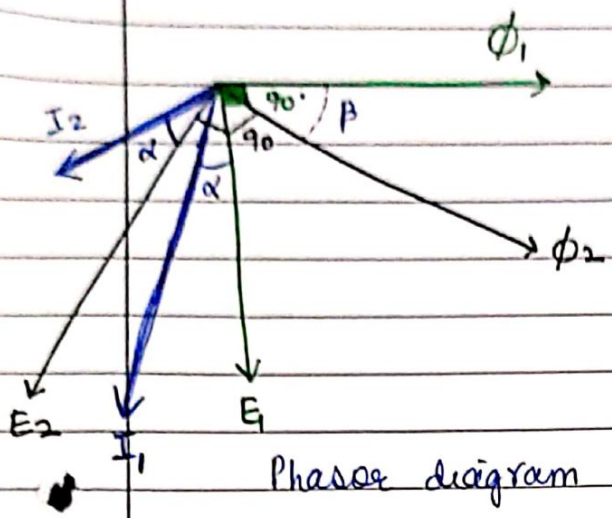 ϕ1
90°
β
I2
α
90
α
ϕ2
E2
I1
E1
Phasor diagram